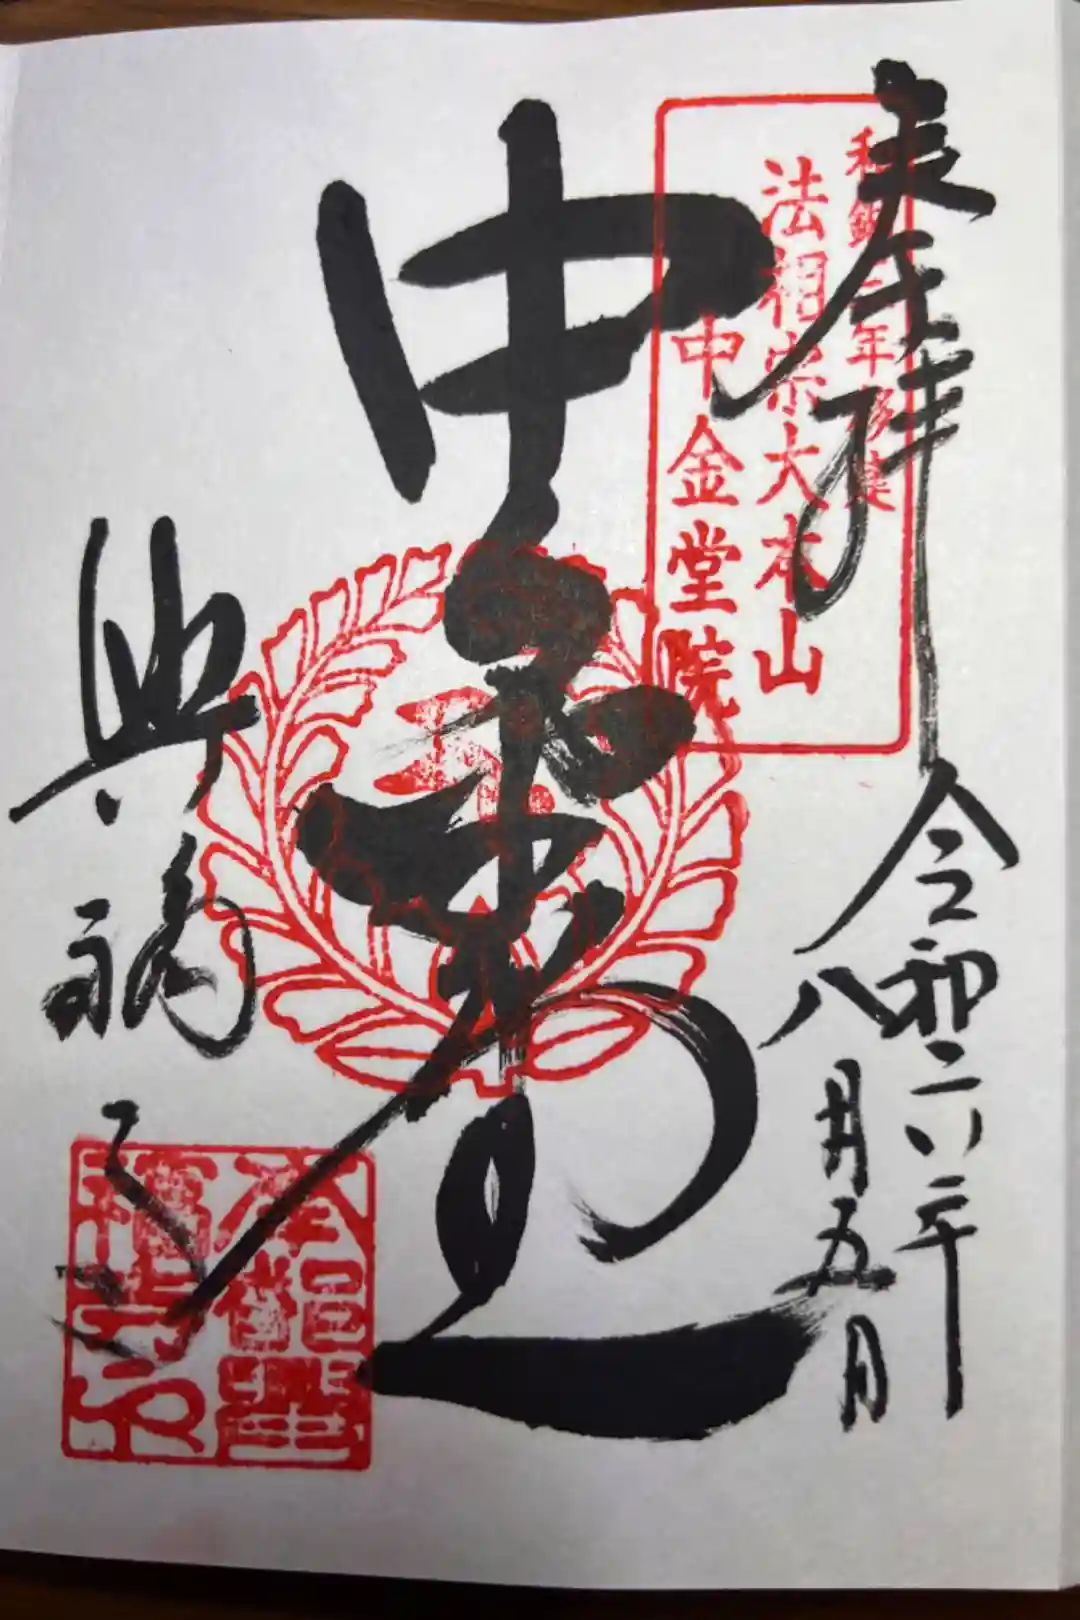 奉拝
令和二年
八月五日
和銅三年移建
法相宗大本山
中金堂院
中金堂
興福寺